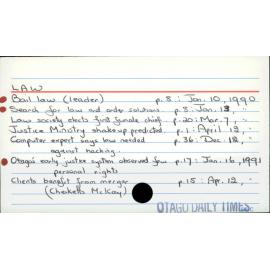 LAW
Bail law (leader) p.8: Jan. 10, 1990
Search for law and order solutions p.8: Jan. 13, "
Law society elects first female chief p.20: Mar. 7, "
Justice Ministry shake up predicted p.1: April 12, "
Computer expert says law needed p.36: Dec. 18, "
against hacking
Otago's early justice system observed few p.17: Jan. 16, 1991
personal rights
Clients benefit from merger p.15: Apr. 12, "
(Checketts McKay)
OTAGO DAILY TIMES